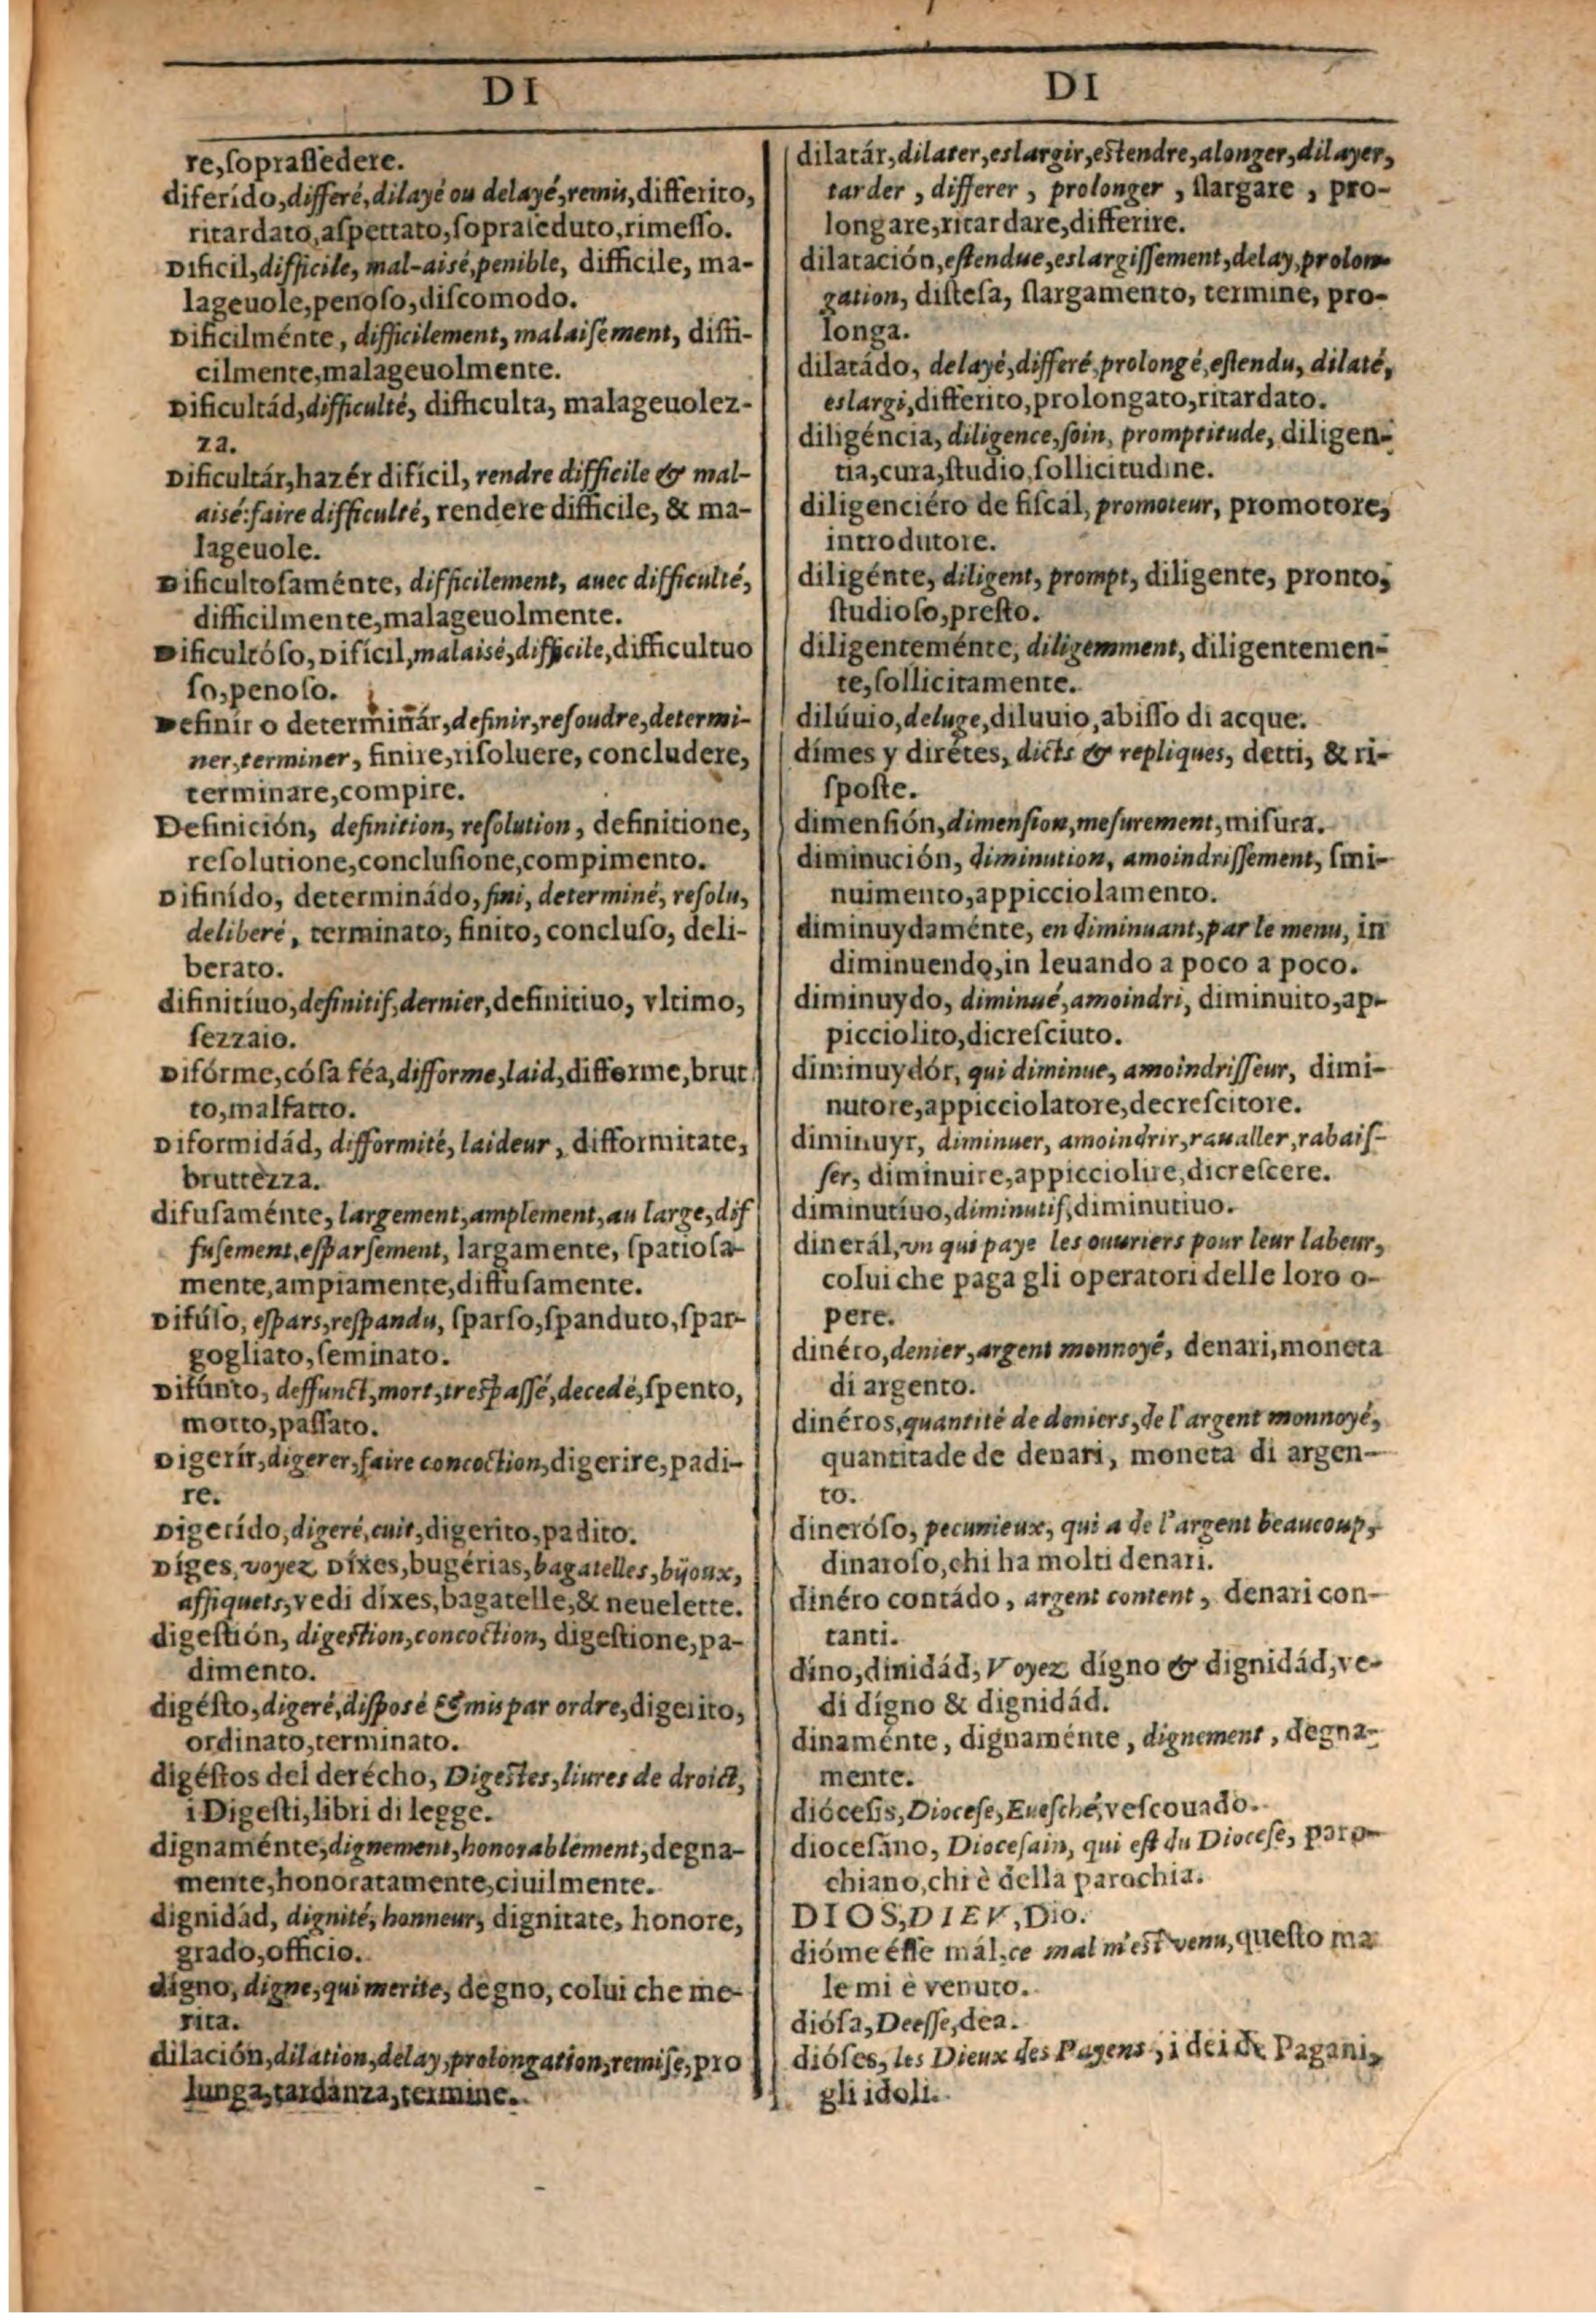 DI
re,soprassedere.
diferído,differé,dilayé ou delayé,remis,differito,
ritardato,aspettato,sopraseduto,rimesso.
Dificil,difficile, mal-aisé,penible, difficile, ma-
lageuole,penoso,discomodo.
Dificilménte, difficilement, malaisement, diffi-
cilmente,malageuolmente.
Dificultád,difficulté, difficulta, malageuolez-
za.
Dificultár,hazér difícil, rendre difficile & mal-
aisé:faire difficulté, rendere difficile, & ma-
lageuole.
Dificultosaménte, difficilement, auec difficulté,
difficilmente,malageuolmente.
Dificultóso,Difícil,malaisé,difficile,difficultuo
so,penoso.
Definír o determinár,definir,resoudre,determi-
ner,terminer, finire,risoluere, concludere,
terminare,compire.
Definición, definition, resolution, definitione,
resolutione,conclusione,compimento.
Difinído, determinádo, fini, determiné, resolu,
deliberé, terminato, finito, concluso, deli-
berato.
difinitíuo,definitif,dernier,definitiuo, vltimo,
sezzaio.
Difórme,cósa féa,difforme,laid,difforme,brut
to,malfatto.
Diformidád, difformité, laideur, difformitate,
bruttèzza.
difusaménte, largement,amplement,au large,dif
fusement,esparsement, largamente, spatiosa-
mente,ampiamente,diffusamente.
Difúso, espars,respandu, sparso,spanduto,spar-
gogliato,seminato.
Difúnto, deffunct,mort,trespassé,decedé,spento,
morto,passato.
Digerír,digerer,faire concoction,digerire,padi-
re.
Digerído,digeré,cuit,digerito,padito.
Díges, voyez Díxes,bugérias,bagatelles,bijoux,
affiquets,vedi díxes,bagatelle,& neuelette.
digestión, digestion,concoction, digestione,pa-
dimento.
digésto,digeré,disposé & mis par ordre,digerito,
ordinato,terminato.
digéstos del derécho, Digestes,liures de droict,
i Digesti,libri di legge.
dignaménte,dignement,honorablement,degna-
mente,honoratamente,ciuilmente.
dignidád, dignité, honneur, dignitate, honore,
grado,officio.
dígno, digne,qui merite, degno, colui che me-
rita.
dilación,dilation,delay,prolongation,remise,pro
lunga,tardanza,termine.
DI
dilatár,dilater,eslargir,estendre,alonger,dilayer,
tarder, differer, prolonger, slargare, pro-
longare,ritardare,differire.
dilatación,estendue,eslargissement,delay,prolon-
gation, distesa, slargamento, termine, pro-
longa.
dilatádo, delayé,differé,prolongé,estendu, dilaté,
eslargi,differito,prolongato,ritardato.
diligéncia, diligence,soin, promptitude, diligen-
tia,cura,studio,sollicitudine.
diligenciéro de fiscál, promoteur, promotore,
introdutore.
diligénte, diligent, prompt, diligente, pronto,
studioso,presto.
diligenteménte, diligemment, diligentemen-
te,sollicitamente.
dilúuio,deluge,diluuio,abisso di acque.
dímes y dirétes, dicts & repliques, detti, & ri-
sposte.
dimensión,dimension,mesurement,misura.
diminución, diminution, amoindrissement, smi-
nuimento,appicciolamento.
diminuydaménte, en diminuant,par le menu, in
diminuendo,in leuando a poco a poco.
diminuydo, diminué,amoindri, diminuito,ap-
picciolito,dicresciuto.
diminuydór, qui diminue, amoindrisseur, dimi-
nutore,appicciolatore,decrescitore.
diminuyr, diminuer, amoindrir,raualler,rabais-
ser, diminuire,appicciolire,dicrescere.
diminutíuo,diminutif,diminutiuo.
dinerál,vn qui paye les ouuriers pour leur labeur,
colui che paga gli operatori delle loro o-
pere.
dinéro,denier,argent monnoyé, denari,moneta
di argento.
dinéros,quantité de deniers,de l'argent monnoyé,
quantitade de denari, moneta di argen-
to.
dineróso, pecunieux, qui a de l'argent beaucoup,
dinaroso,chi ha molti denari.
dinéro contádo, argent content, denari con-
tanti.
díno,dinidád, Voyez dígno & dignidád,ve-
di dígno & dignidád.
dinaménte, dignaménte, dignement, degna-
mente.
diócesis,Diocese,Euesché,vescouado.
diocesáno, Diocesain, qui est du Diocese, paro-
chiano,chi è della parochia.
DIOS,DIEV,Dio.
dióme ésse mál,ce mal m'est venu,questo ma
le mi è venuto.
diósa,Deesse,dea.
dióses, les Dieux des Payens, i dei de Pagani,
gli idoli.